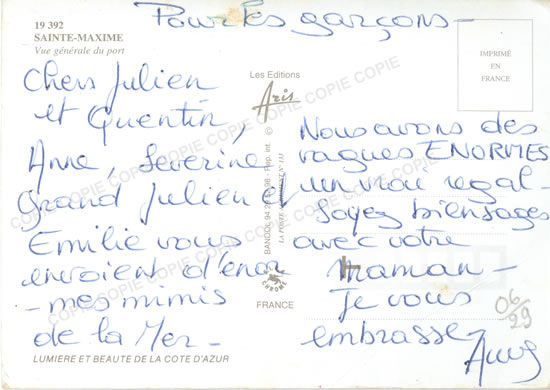 Pour les garçons -
19 392
SAINTE-MAXIME
Vue générale du port
IMPRIMÉ
EN
FRANCE
Les Editions
Aris
Chers Julien
et Quentin,
Anne, Severine
grand Julien et
Emilie vous
envoient d'énor
-mes mimis
de la Mer -
Nous avons des
vagues ENORMES
un vrai régal -
Soyez bien sages
avec votre
maman -
Je vous
embrasse
BANDOL 94 26
Rep. int. ©
CHROME
FRANCE
06/29
LUMIERE ET BEAUTE DE LA COTE D'AZUR
COPIE COPIE COPIE COPIE COPIE